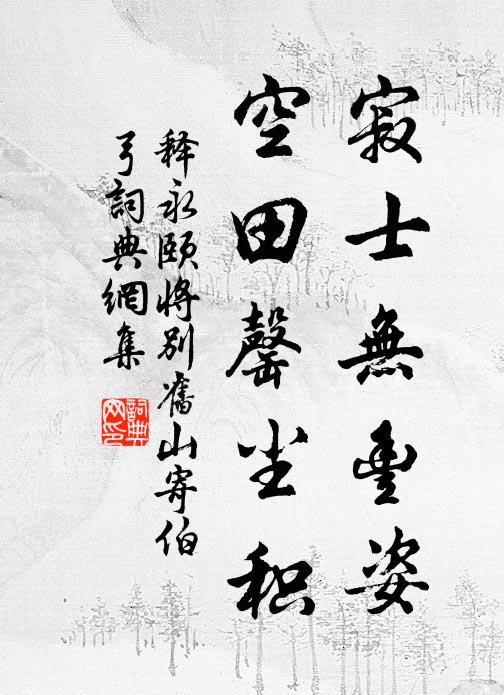 寂士無豐姿
空田罄尘积
释永頤将别舊山寄伯
弓詞典網集
詞典
网印